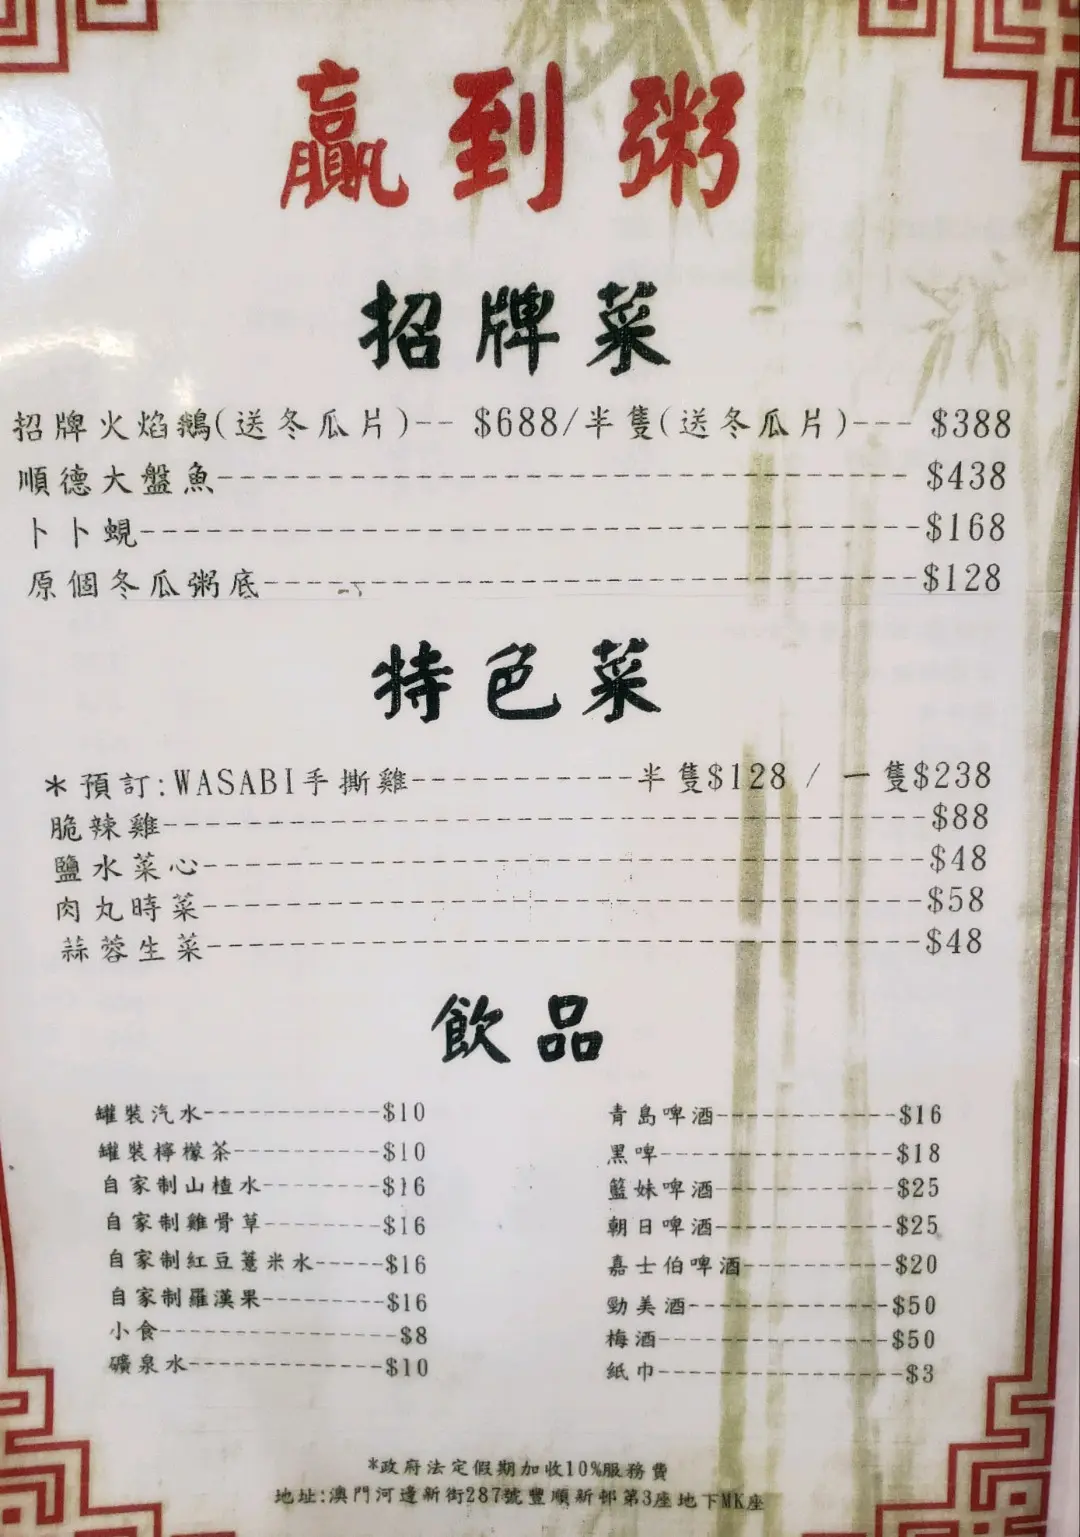 贏到粥
招牌菜
招牌火焰鵝(送冬瓜片)-- $688/半隻(送冬瓜片)--- $388
順德大盤魚-------------------------------- $438
卜卜蜆------------------------------------$168
原個冬瓜粥底------------------------------$128
特色菜
*預訂:WASABI手撕雞-----------半隻$128 / 一隻$238
脆辣雞------------------------------------$88
鹽水菜心----------------------------------$48
肉丸時菜----------------------------------$58
蒜蓉生菜----------------------------------$48
飲品
罐裝汽水------------$10
罐裝檸檬茶----------$10
自家制山楂水--------$16
自家制雞骨草--------$16
自家制紅豆薏米水-----$16
自家制羅漢果--------$16
小食----------------$8
礦泉水-------------$10
青島啤酒------------$16
黑啤----------------$18
籃妹啤酒------------$25
朝日啤酒------------$25
嘉士伯啤酒----------$20
勁美酒--------------$50
梅酒----------------$50
紙巾-----------------$3
*政府法定假期加收10%服務費
地址:澳門河邊新街287號豐順新邨第3座地下MK座